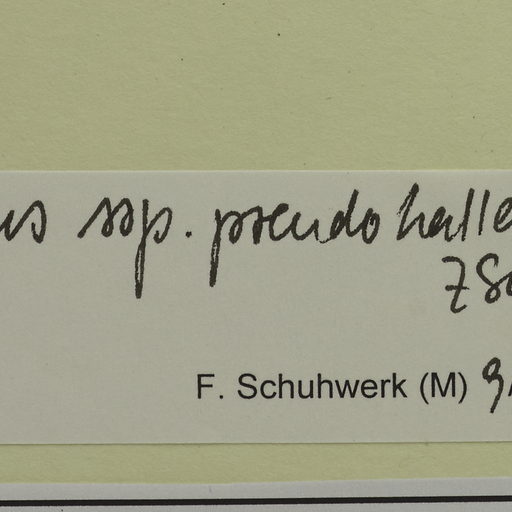 us ssp. pseudohalle
ZSa
F. Schuhwerk (M) 9/